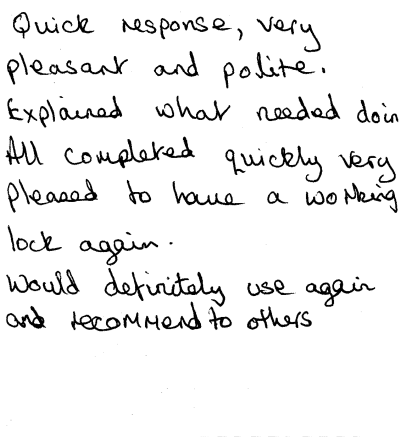 Quick response, very
pleasant and polite.
Explained what needed doin
All completed quickly very
pleased to have a working
lock again.
Would definitely use again
and recommend to others